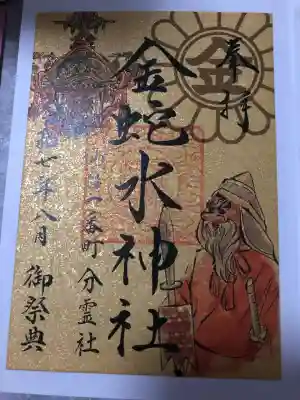 奉拝
金
金蛇水神社
一番町分霊社
七年八月 御祭典